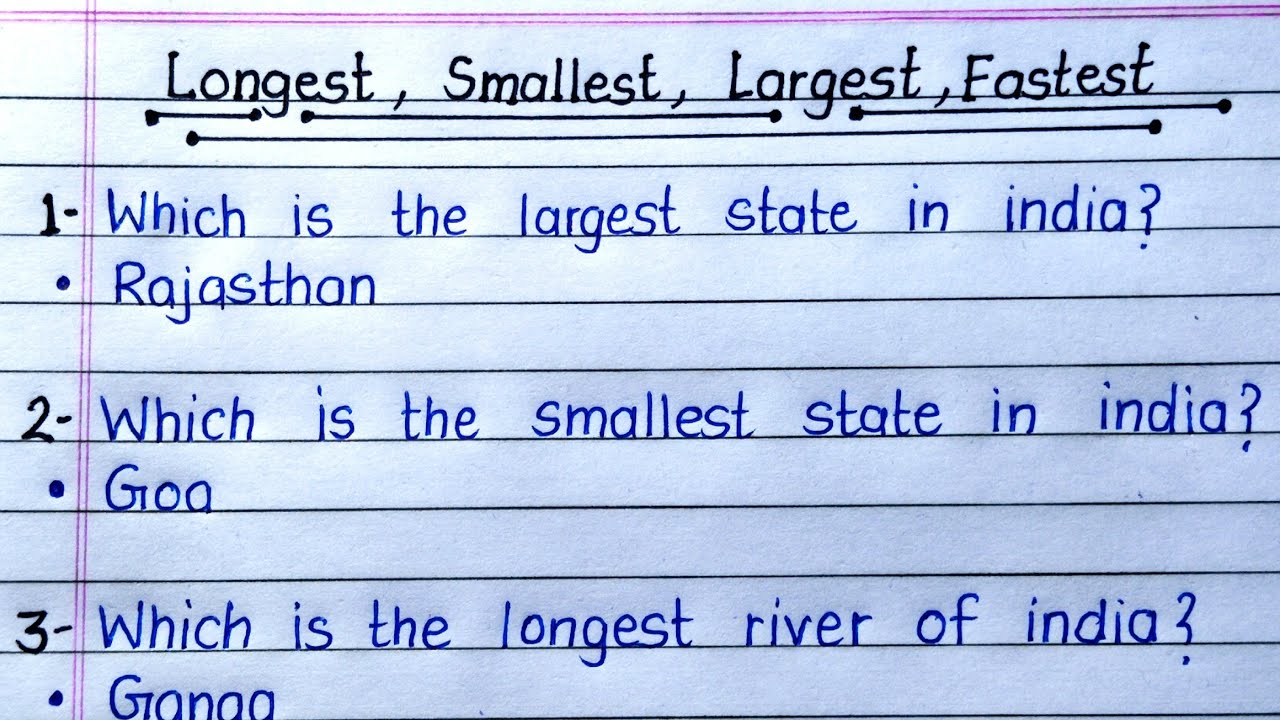 Longest, Smallest, Largest, Fastest
1- Which is the largest state in india?
• Rajasthan
2- Which is the smallest state in india?
• Goa
3- Which is the longest river of india?
• Ganga